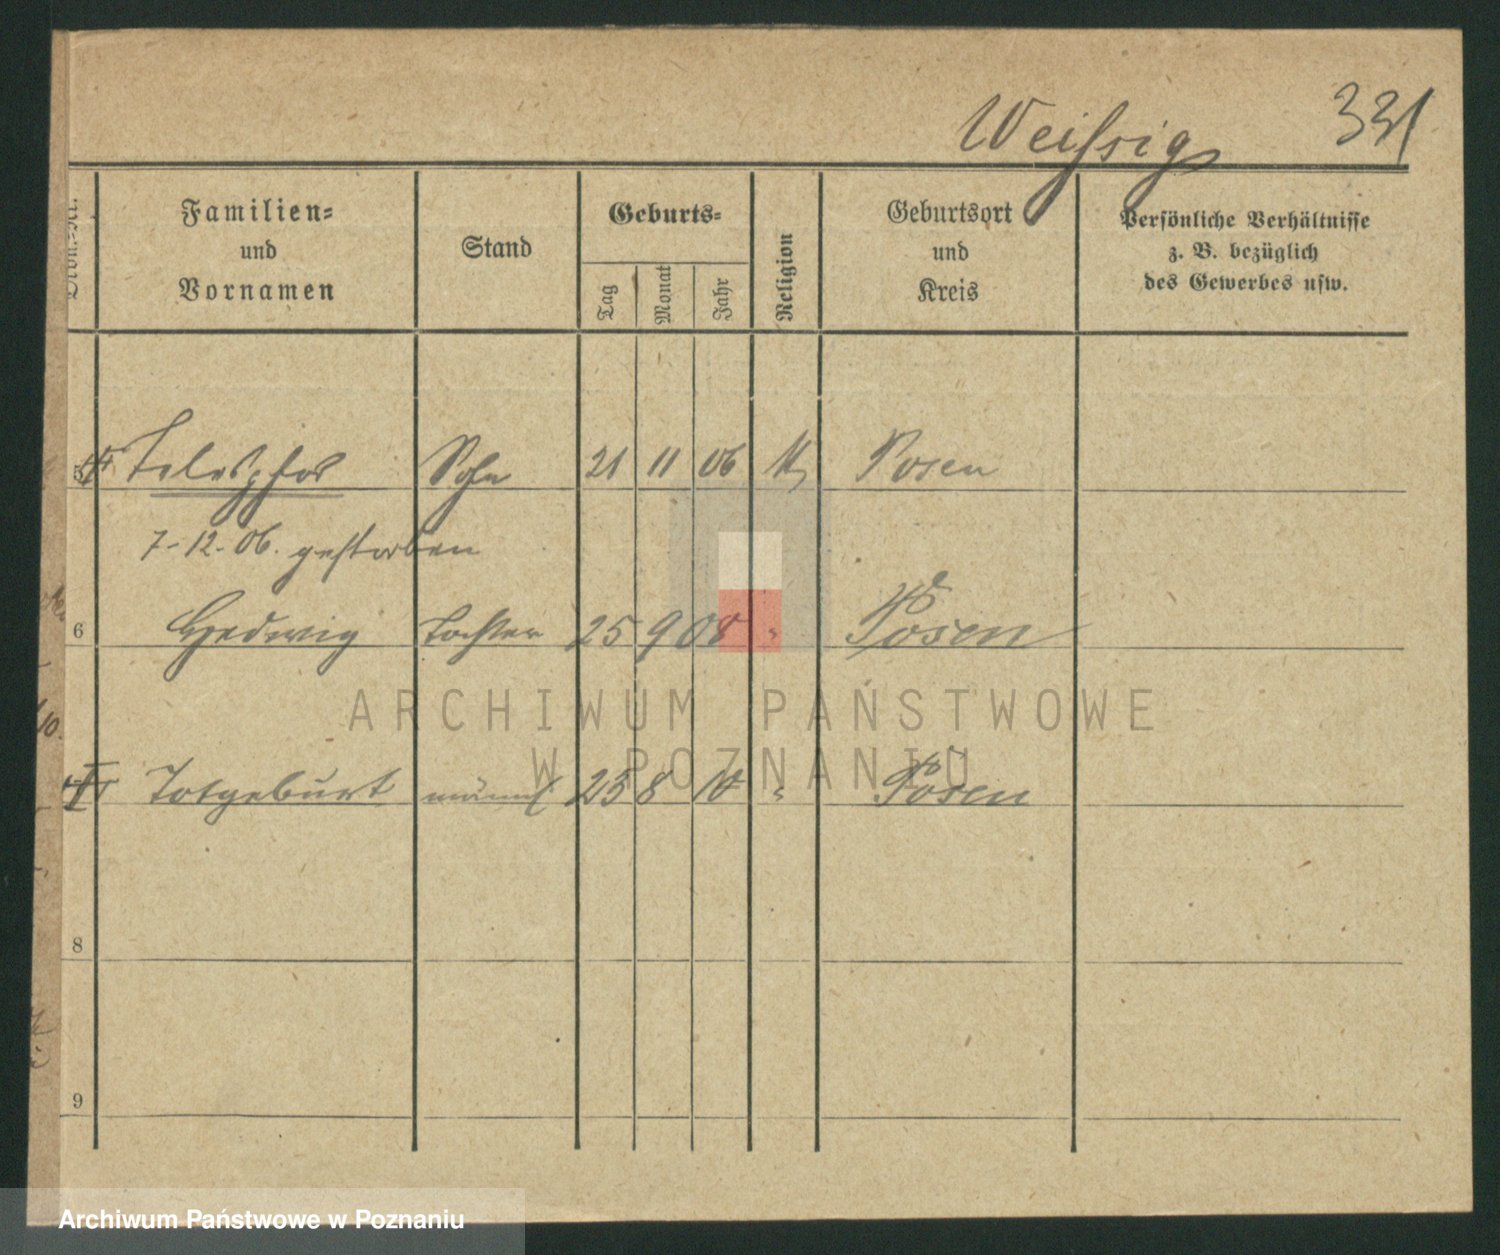 Weißig 331
Familien=
und
Vornamen
Stand
Geburts=
Tag
Monat
Jahr
Religion
Geburtsort
und
Kreis
Persönliche Verhältnisse
z. B. bezüglich
des Gewerbes usw.
5 Telesphor Sohn 21 11 06 K Posen
7-12-06. gestorben
6 Hedwig Tochter 25 9 08 " Posen
Totgeburt männl 25 8 10 " Posen
8
9
ARCHIWUM PAŃSTWOWE
W POZNANIU
Archiwum Państwowe w Poznaniu